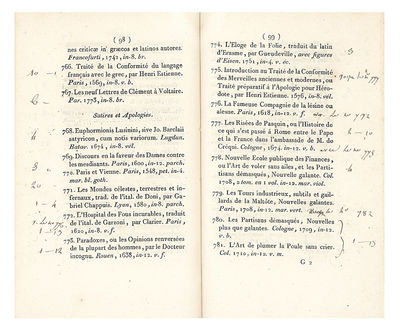 ( 98 )
nes criticæ in græcos et latinos autores.
Francofurti, 1742, in-8. br.
766. Traité de la Conformité du langage
français avec le grec, par Henri Estienne.
Paris, 1569, in-8. v. b.
767. Les neuf Lettres de Clément à Voltaire.
Par. 1773, in-8. br.
Satires et Apologies.
768. Euphormionis Lusinini, sive Jo. Barclaii
satyricon, cum notis variorum. Lugdun.
Batav. 1674, in-8. vel.
769. Discours en la faveur des Dames contre
les mesdisants. Paris, 1600, in-12. parch.
770. Paris et Vienne. Paris, 1548, pet. in-4.
mar. bl. goth.
771. Les Mondes célestes, terrestres et in-
fernaux, trad. de l'ital. de Doni, par Ga-
briel Chappuis. Lyon, 1580, in-8. parch.
772. L'Hospital des Fous incurables, traduit
de l'ital. de Garzoni, par Clarier. Paris,
1620, in-8. v. f.
773. Paradoxes, ou les Opinions renversées
de la plupart des hommes, par le Docteur
incognu. Rouen, 1638, in-12. v. f.
( 99 )
774. L'Eloge de la Folie, traduit du latin
d'Erasme, par Gueudeville, avec figures
d'Eisen. 1751, in-4. v. éc.
775. Introduction au Traité de la Conformité
des Merveilles anciennes et modernes, ou
Traité préparatif à l'Apologie pour Héro-
dote, par Henri Estienne. 1576, in-8. vel.
776. La Fameuse Compagnie de la lésine ou
alesne. Paris, 1618, in-12. v. f.
777. Les Risées de Pasquin, ou l'Histoire de
ce qui s'est passé à Rome entre le Pape
et la France dans l'ambassade de M. de
Créqui. Cologne, 1674, in-12. v. b.
778. Nouvelle Ecole publique des Finances,
ou l'Art de voler sans ailes, et les Parti-
sans démasqués, Nouvelle galante. Col.
1708, 2 tom. en 1 vol. in-12. mar. viol.
779. Les Tours industrieux, subtils et gail-
lards de la Maltôte, Nouvelles galantes.
Paris, 1708, in-12. mar. vert.
780. Les Partisans démasqués, Nouvelles
plus que galantes. Cologne, 1709, in-12.
v. b.
781. L'Art de plumer la Poule sans crier.
Col. 1710, in-12. v. m.
G 2